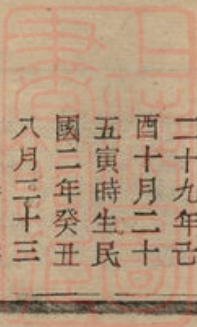 二十九年己
酉十月二十
五寅時生民
國二年癸丑
八月三十三